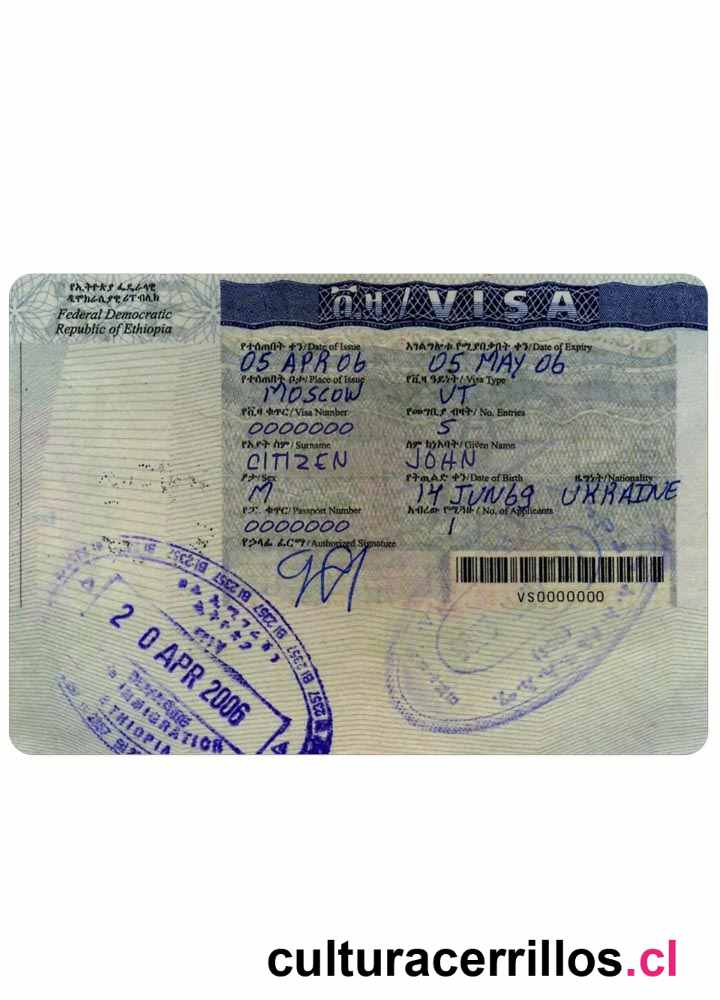 የኢትዮጵያ ፌዴራላዊ
ዲሞክራሲያዊ ሪፐብሊክ
Federal Democratic
Republic of Ethiopia
ቪዛ / VISA
የተሰጠበት ቀን/Date of Issue
05 APR 06
አገልግሎቱ የሚያበቃበት ቀን/Date of Expiry
05 MAY 06
የተሰጠበት ቦታ/Place of Issue
MOSCOW
የቪዛ ዓይነት/Visa Type
VT
የቪዛ ቁጥር/Visa Number
0000000
የመግቢያ ብዛት/ No. Entries
S
የአያት ስም/ Surname
CITIZEN
ስም ከነአባት/ Given Name
JOHN
ፆታ/Sex
M
የትዉልድ ቀን/Date of Birth
14 JUN 69
ዜግነት/Nationality
UKRAINE
የፓ. ቁጥር/Passport Number
0000000
አብረው የሚጓዙ / No. of Applicants
1
የኃላፊ ፊርማ/Authorized Signature
VS0000000
BI 2357 BI 2357 BI 2357
20 APR 2006
IMMIGRATION
ETHIOPIA
culturacerrillos.cl